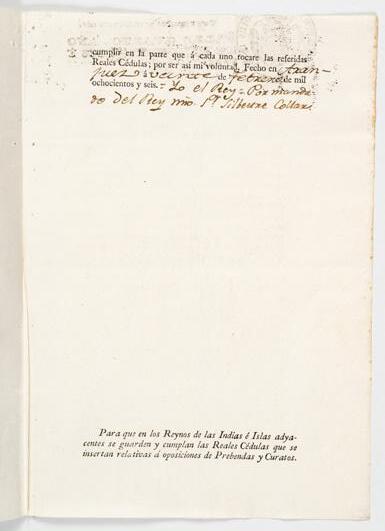 cumplir en la parte que á cada uno tocare las referidas
Reales Cédulas; por ser así mi voluntad. Fecho en Aran-
juez á veinte de Febrero de mil
ochocientos y seis.= Yo el Rey = Por manda-
do del Rey nro. Sr. Silbestre Collar.
Para que en los Reynos de las Indias é Islas adya-
centes se guarden y cumplan las Reales Cédulas que se
insertan relativas á oposiciones de Prebendas y Curatos.